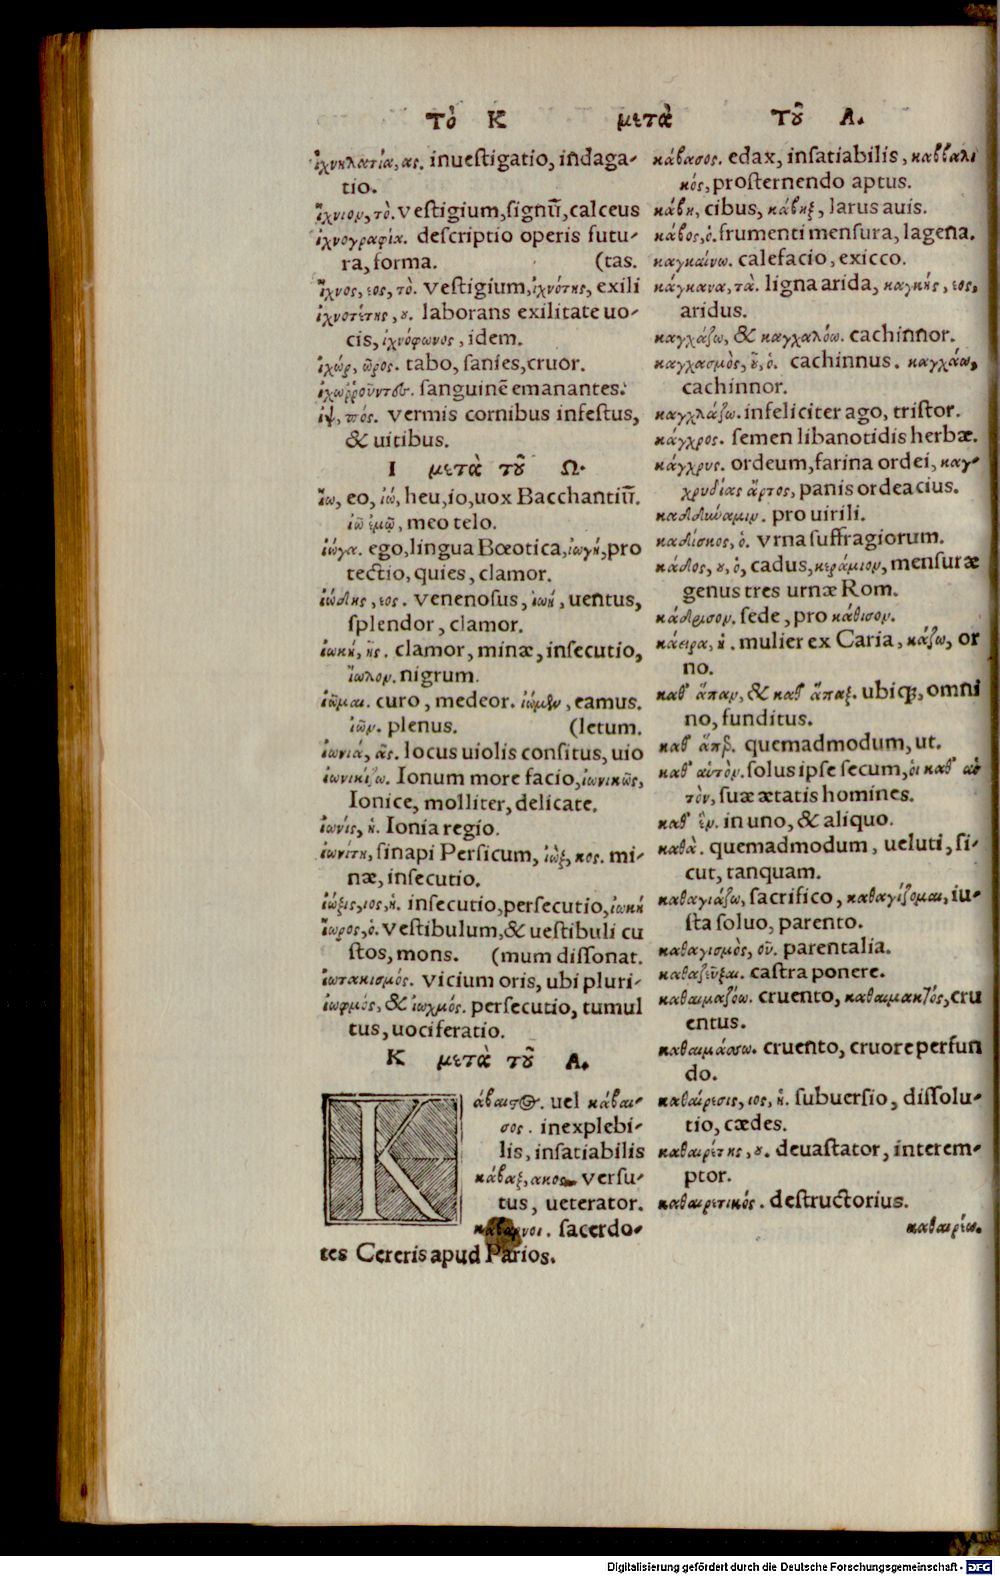 Τὸ Κ μετὰ τοῦ Α.
ἰχνηλατία, ας. inuestigatio, indaga-
tio.
ἴχνιον, τὸ. vestigium, signũ, calceus
ἰχνογραφία. descriptio operis futu-
ra, forma. (tas.
ἴχνος, εος, τὸ. vestigium, ἰχνότης, exili
ἰχνοτέτης, ου. laborans exilitate uo-
cis, ἰχνόφωνος, idem.
ἰχώρ, ῶρος. tabo, sanies, cruor.
ἰχωῤῥοοῦντες. sanguinẽ emanantes.
ἲψ, πός. vermis cornibus infestus,
& uitibus.
Ι μετὰ τοῦ Ω.
ἴω, eo, ἰώ, heu, io, uox Bacchantiũ.
ἰῶ ἐμῷ, meo telo.
ἰώγα. ego, lingua Bœotica, ἰωγή, pro
tectio, quies, clamor.
ἰώδης, εος. venenosus, ἰωή, uentus,
splendor, clamor.
ἰωκή, ῆς. clamor, minæ, insecutio,
ἴωλον. nigrum.
ἰῶμαι. curo, medeor. ἰώμεν, eamus.
ἰῶν. plenus. (letum.
ἰωνιά, ᾶς. locus uiolis consitus, uio
ἰωνικίζω. Ionum more facio, ἰωνικῶς,
Ionice, molliter, delicate.
ἰωνίς, ἡ. Ionia regio.
ἰωνίτη, sinapi Persicum, ἰὼξ, κος. mi-
næ, insecutio.
ἰώξις, ιος, ἡ. insecutio, persecutio, ἰωκή
ἴωρος, ὁ. vestibulum, & uestibuli cu
stos, mons. (mum dissonat.
ἰωτακισμός. vicium oris, ubi pluri-
ἰωφμός, & ἰωχμός. persecutio, tumul
tus, uociferatio.
Κ μετὰ τοῦ Α.
Κάβαισος. uel κάβαι-
σος. inexplebi-
lis, insatiabilis
κάβαξ, ακος. versu-
tus, ueterator.
κάβαρνοι. sacerdo-
tes Cereris apud Parios.
κάβασος. edax, insatiabilis, καββαλι
κός, prosternendo aptus.
κάβη, cibus, κάβηξ, larus auis.
κάβος, ὁ. frumenti mensura, lagena.
καγκαίνω. calefacio, exicco.
κάγκανα, τὰ. ligna arida, καγκής, εος,
aridus.
καγχάζω, & καγχαλόω. cachinnor.
καγχασμὸς, οῦ, ὁ. cachinnus. καγχάω,
cachinnor.
καγχλάζω. infeliciter ago, tristor.
κάγχρος. semen libanotidis herbæ.
κάγχρυς. ordeum, farina ordei, καγ-
χρυδίας ἄρτος, panis ordeacius.
καδδύναμιν. pro uirili.
καδίσκος, ὁ. vrna suffragiorum.
κάδος, ου, ὁ, cadus, κεράμιον, mensuræ
genus tres urnæ Rom.
κάδρισον. sede, pro κάθισον.
κάειρα, ἡ. mulier ex Caria, κάζω, or
no.
καθ' ἅπαν, & καθ' ἅπαξ. ubiq;, omni
no, funditus.
καθ' ἅπερ. quemadmodum, ut.
καθ' αὑτὸν. solus ipse secum, οἱ καθ' αὑ
τὸν, suæ ætatis homines.
καθ' ἓν. in uno, & aliquo.
καθὰ. quemadmodum, ueluti, si-
cut, tanquam.
καθαγιάζω, sacrifico, καθαγίζομαι, iu-
sta soluo, parento.
καθαγισμὸς, οῦ. parentalia.
καθαζεῦξαι. castra ponere.
καθαιμαζόω. cruento, καθαιμακτός, cru
entus.
καθαιμάσσω. cruento, cruore perfun
do.
καθαίρεσις, ιος, ἡ. subuersio, dissolu-
tio, cædes.
καθαιρέτης, ου. deuastator, interem-
ptor.
καθαιρετικός. destructorius.
καθαιρέω.
Digitalisierung gefördert durch die Deutsche Forschungsgemeinschaft - DFG